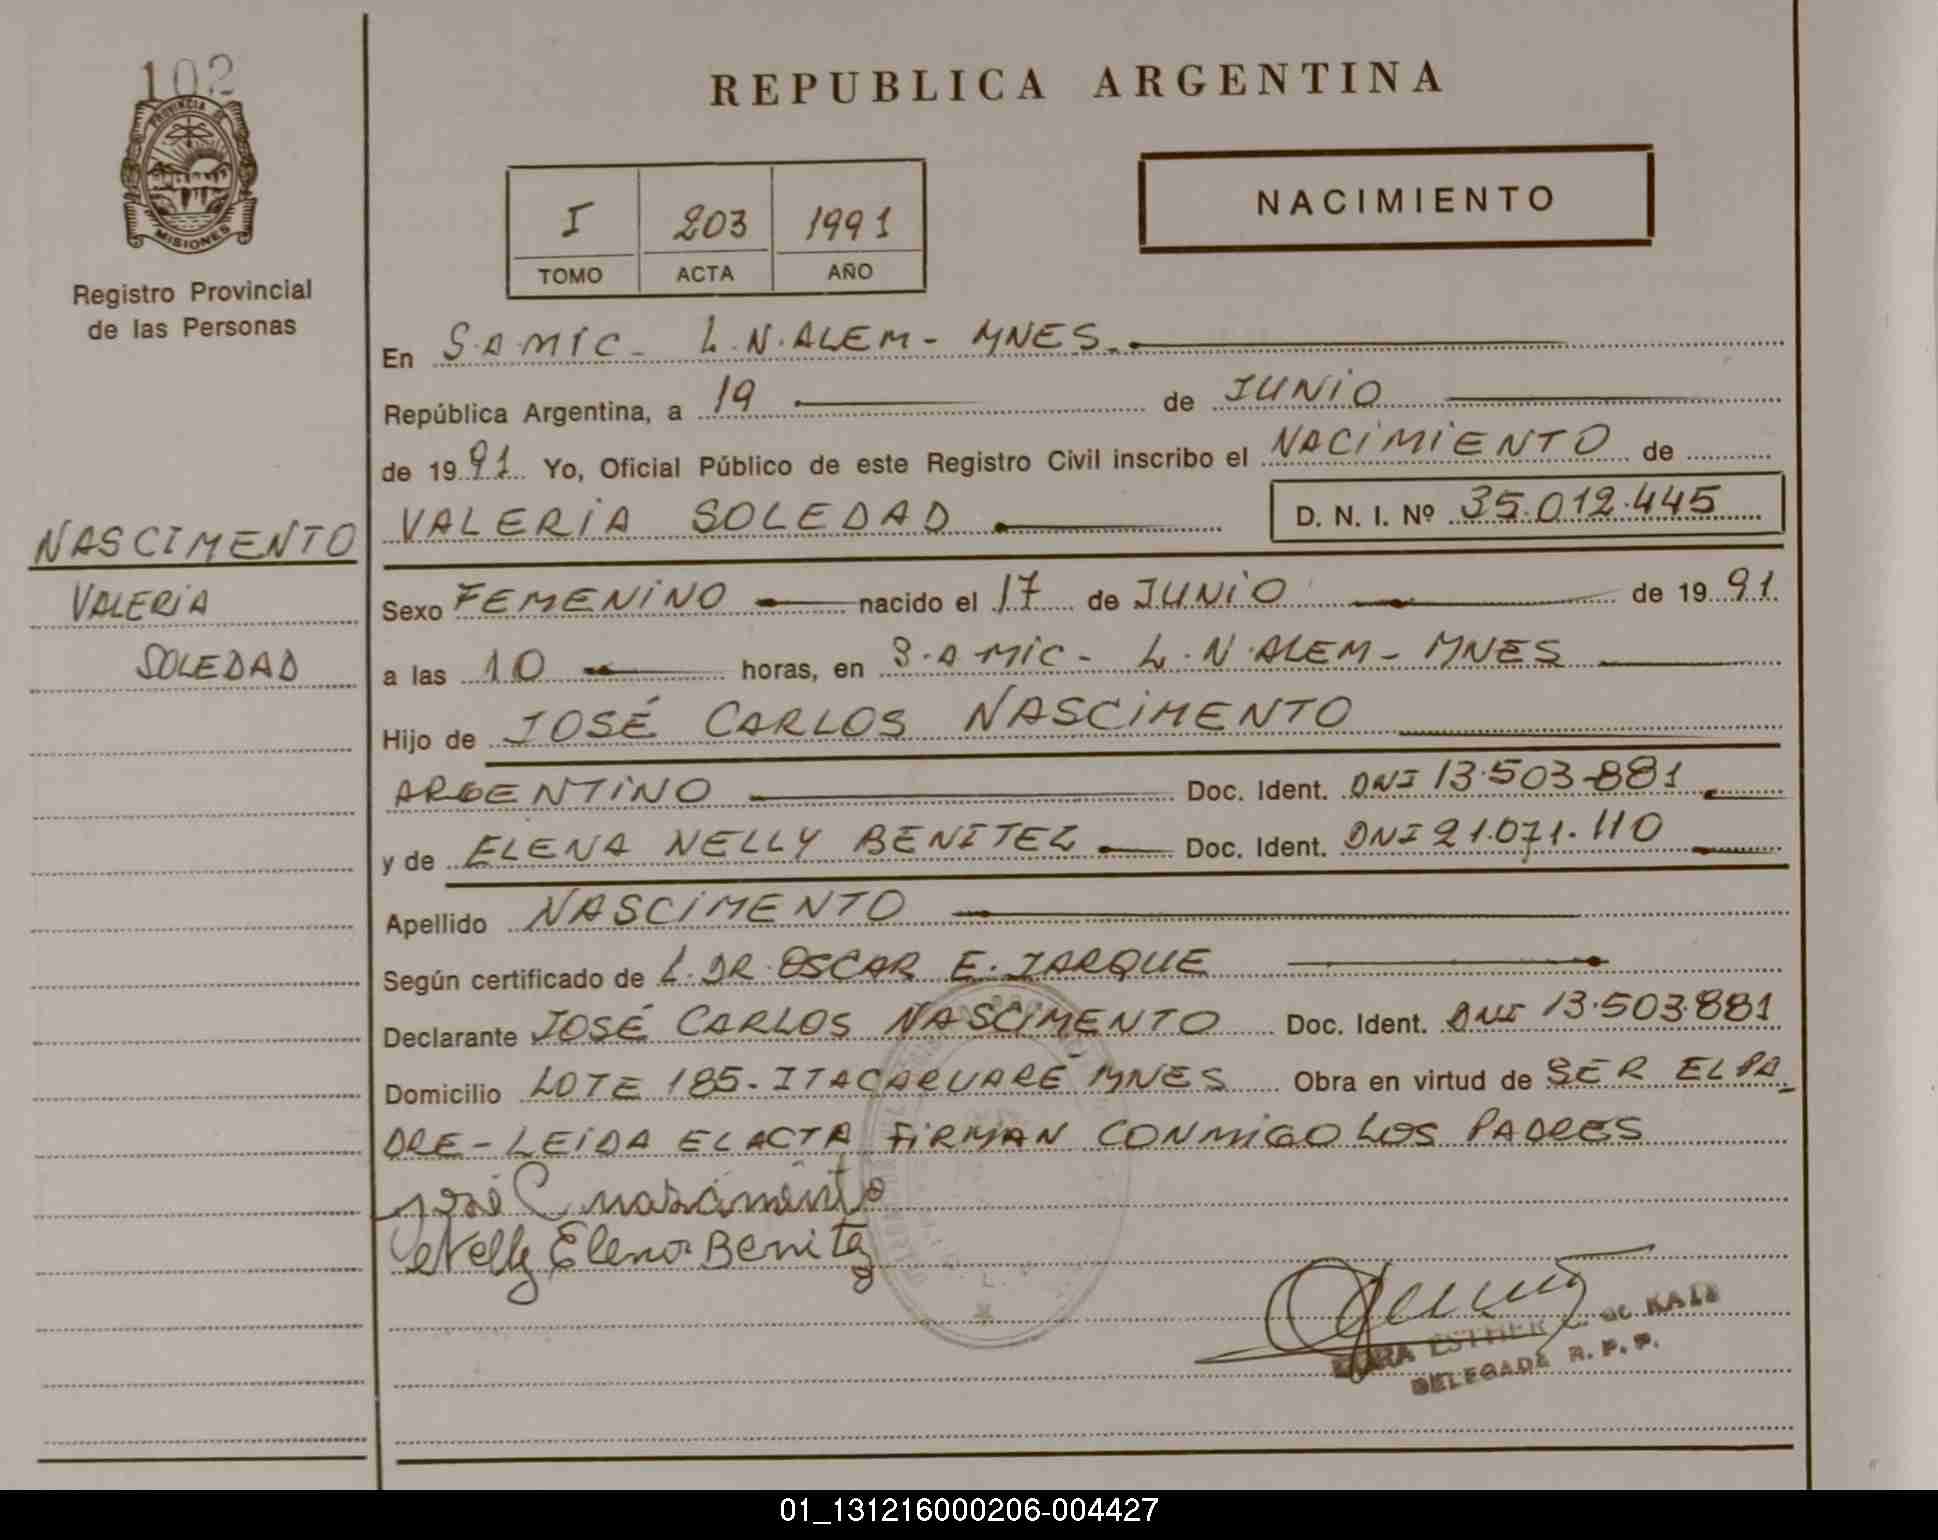 102
PROVINCIA DE
MISIONES
Registro Provincial
de las Personas
NASCIMENTO
VALERIA
SOLEDAD
REPUBLICA ARGENTINA
I 203 1991
TOMO ACTA AÑO
NACIMIENTO
En S.A.MIC - L.N.ALEM - MNES.
República Argentina, a 19 de JUNIO
de 1991 Yo, Oficial Público de este Registro Civil inscribo el NACIMIENTO de
VALERIA SOLEDAD D. N. I. Nº 35.012.445
Sexo FEMENINO nacido el 17 de JUNIO de 1991.
a las 10 horas, en S.A.MIC - L.N.ALEM - MNES
Hijo de JOSÉ CARLOS NASCIMENTO
ARGENTINO Doc. Ident. DNI 13.503.881
y de ELENA NELLY BENITEZ Doc. Ident. DNI 21.071.110
Apellido NASCIMENTO
Según certificado de L. DR. OSCAR E. JARQUE
Declarante JOSÉ CARLOS NASCIMENTO Doc. Ident. DNI 13.503.881
Domicilio LOTE 185 - ITACARUARÉ MNES Obra en virtud de SER EL PA-
DRE - LEIDA EL ACTA FIRMAN CONMIGO LOS PADRES
José C nascimento
Nelly Elena Benitez
ESTHER de KAIS
DELEGADA R. P. P.
01_131216000206-004427